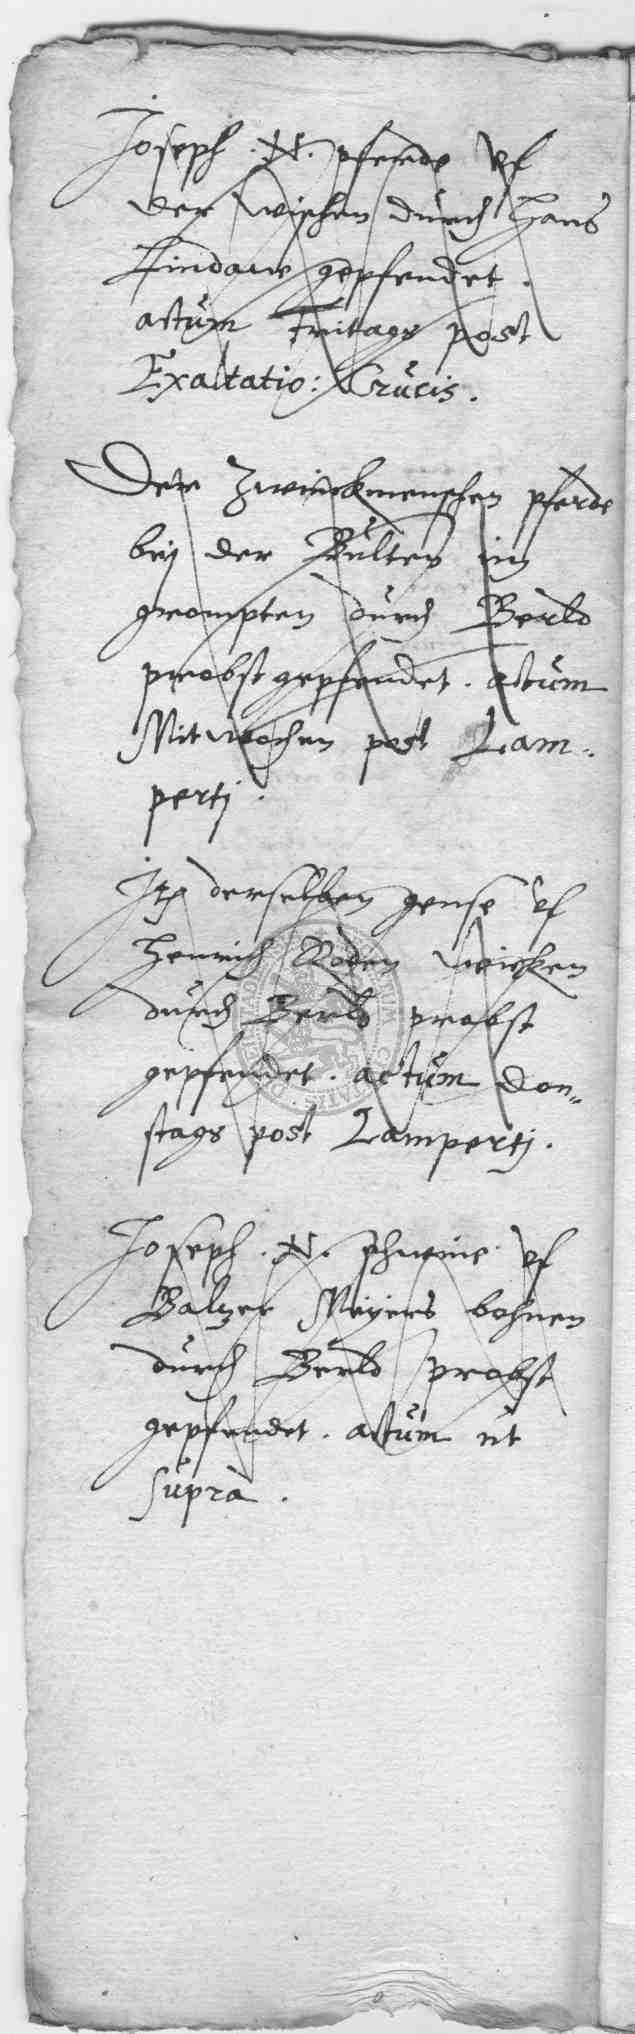 Joseph. N. pferde uf
der wischen durch Hans
Lindaw gepfendet.
actum Fritags post
Exaltatio: Crucis.
Der Zwinckmenschen pferde
beij der Bülten im
grompten durch Berld
probst gepfendet. actum
Mitwochen post Lam-
pertj.
derselben gense uf
Henrich Boden wicken
durch Berld probst
gepfendet. actum don-
stags post Lampertj.
Joseph. N. schweine uf
Baltzer Meijers bohnen
durch Berld probst
gepfendet. actum ut
supra.